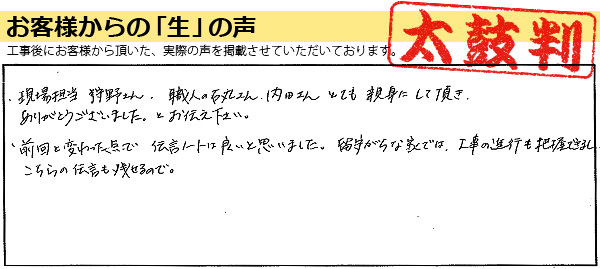 お客様からの「生」の声
工事後にお客様から頂いた、実際の声を掲載させていただいております。
太鼓判
・現場担当 狩野さん、職人の石丸さん、内田さん とても 親身に して頂き、
ありがとうございました。とお伝え下さい。
・前回と変わった点で 伝言ノートは良いと思いました。留守がちな家では、工事の進行も把握できるし
こちらの伝言も残せるので。